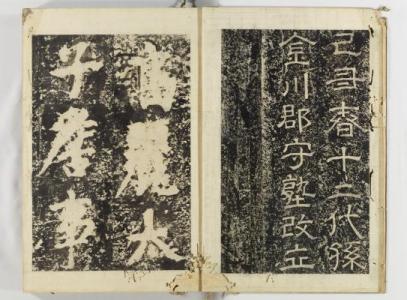 己丑春十二代孫
金川郡守塾改立
高麗太
子詹事